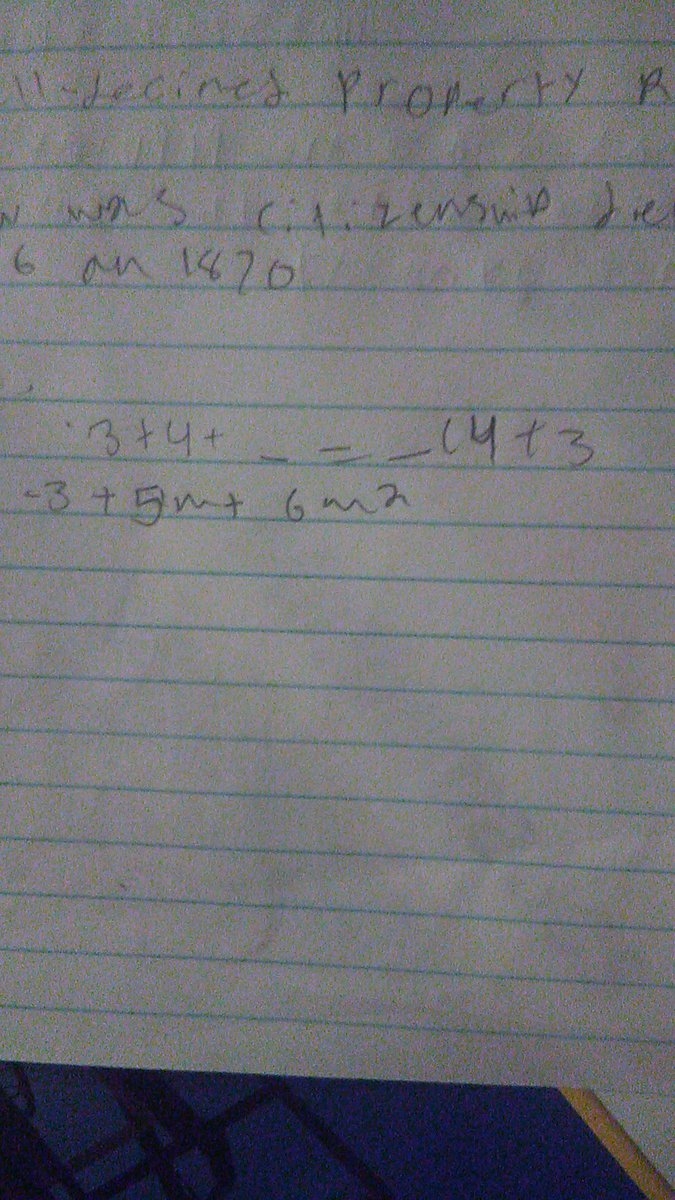 ll-decined Property R
w was citizenship die
6 an 1870
3+4+ _ = _(4+3
-3+5m+ 6m2